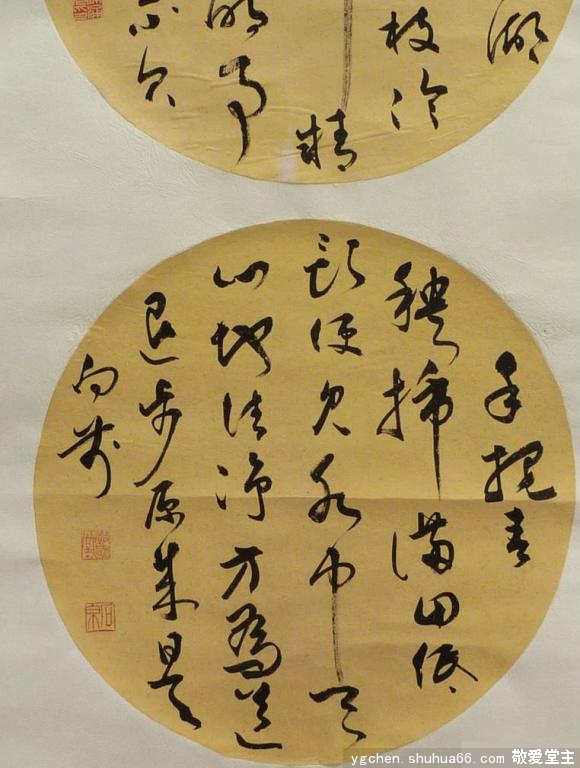 湖
枝冷
精
手把青
秧插滿田低
頭便見水中天
心地清淨方為道
退步原來是
向前
ygchen.shuhua66.com 敬爱堂主